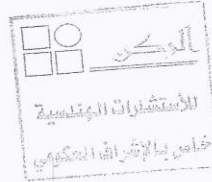 الركن
للأستشارات الهندسية
خاص بالإشراف الحكومي